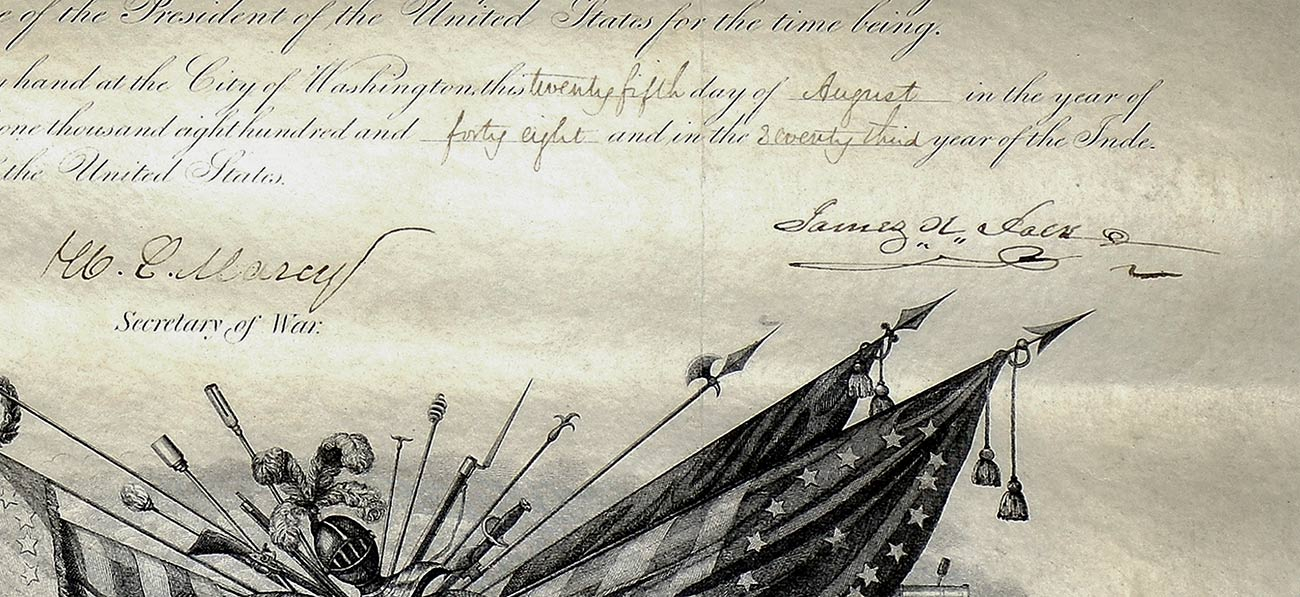 e of the President of the United States for the time being.
hand at the City of Washington this twenty fifth day of August in the year of
one thousand eight hundred and forty eight and in the Seventy third year of the Inde-
the United States.
James K. Polk
W. L. Marcy
Secretary of War.